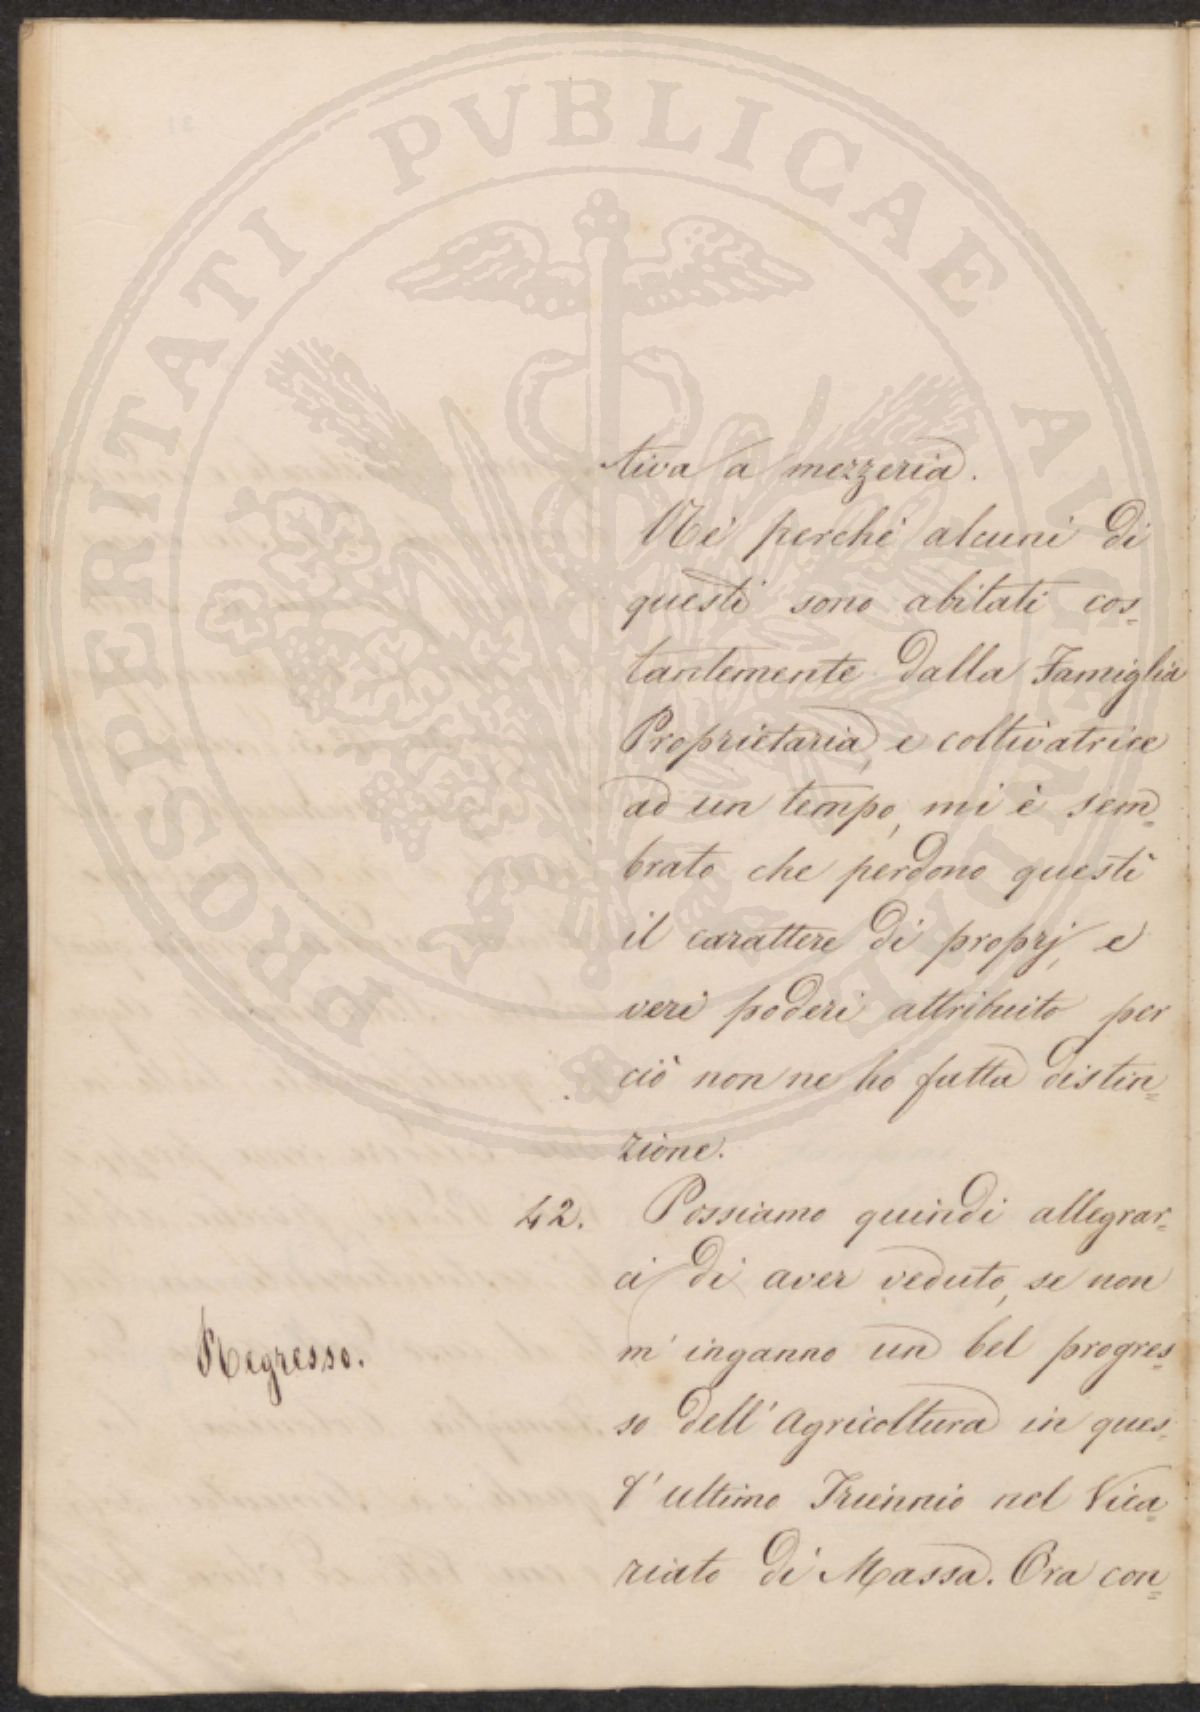 PROSPERITATI PVBLICAE AVGENDAE
tiva a mezzeria.
Nè perchè alcuni di
questi sono abitati cos=
tantemente dalla Famiglia
Proprietaria, e coltivatrice
ad un tempo, mi è sem=
brato che perdono questi
il carattere di proprj, e
veri poderi attribuito per
ciò non ne ho fatta distin=
zione.
42. Possiamo quindi allegrar=
ci di aver veduto, se non
m'inganno un bel progres=
Regresso.
so dell'Agricoltura in ques=
t'ultimo Triennio nel Vica=
riato di Massa. Ora con=